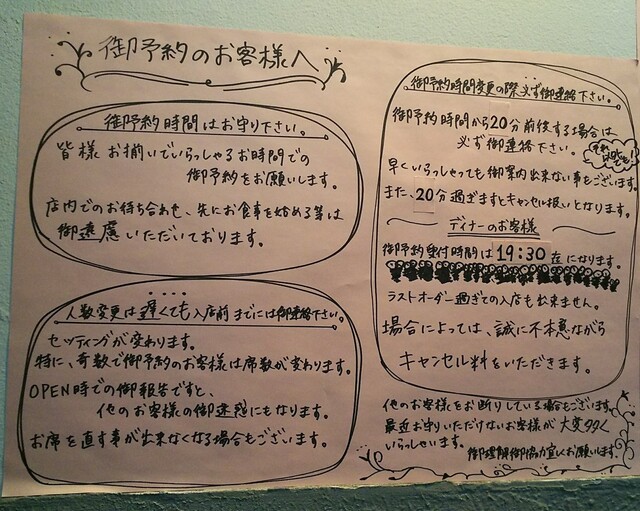 御予約のお客様へ
御予約時間はお守り下さい。
皆様 お揃いでいらっしゃるお時間での
御予約をお願いします。
店内でのお待ち合わせ、先にお食事を始める等は
御遠慮いただいております。
人数変更は遅くても入店前までには御連絡下さい。
セッティングが変わります。
特に、奇数で御予約のお客様は席数が変わります。
OPEN時での御報告ですと、
他のお客様の御迷惑にもなります。
お席を直す事が出来なくなる場合もございます。
御予約時間変更の際必ず御連絡下さい。
御予約時間から20分前後する場合は
必ず御連絡下さい。
早くいらっしゃっても御案内出来ない事もございます。
また、20分過ぎますとキャンセル扱いとなります。
ディナーのお客様
御予約受付時間は19:30迄になります。
ラストオーダー過ぎての入店も出来ません。
場合によっては、誠に不本意ながら
キャンセル料をいただきます。
他のお客様をお断りしている場合もございます。
最近お守りいただけないお客様が大変多く
いらっしゃいます。
御理解御協力宜しくお願いします。